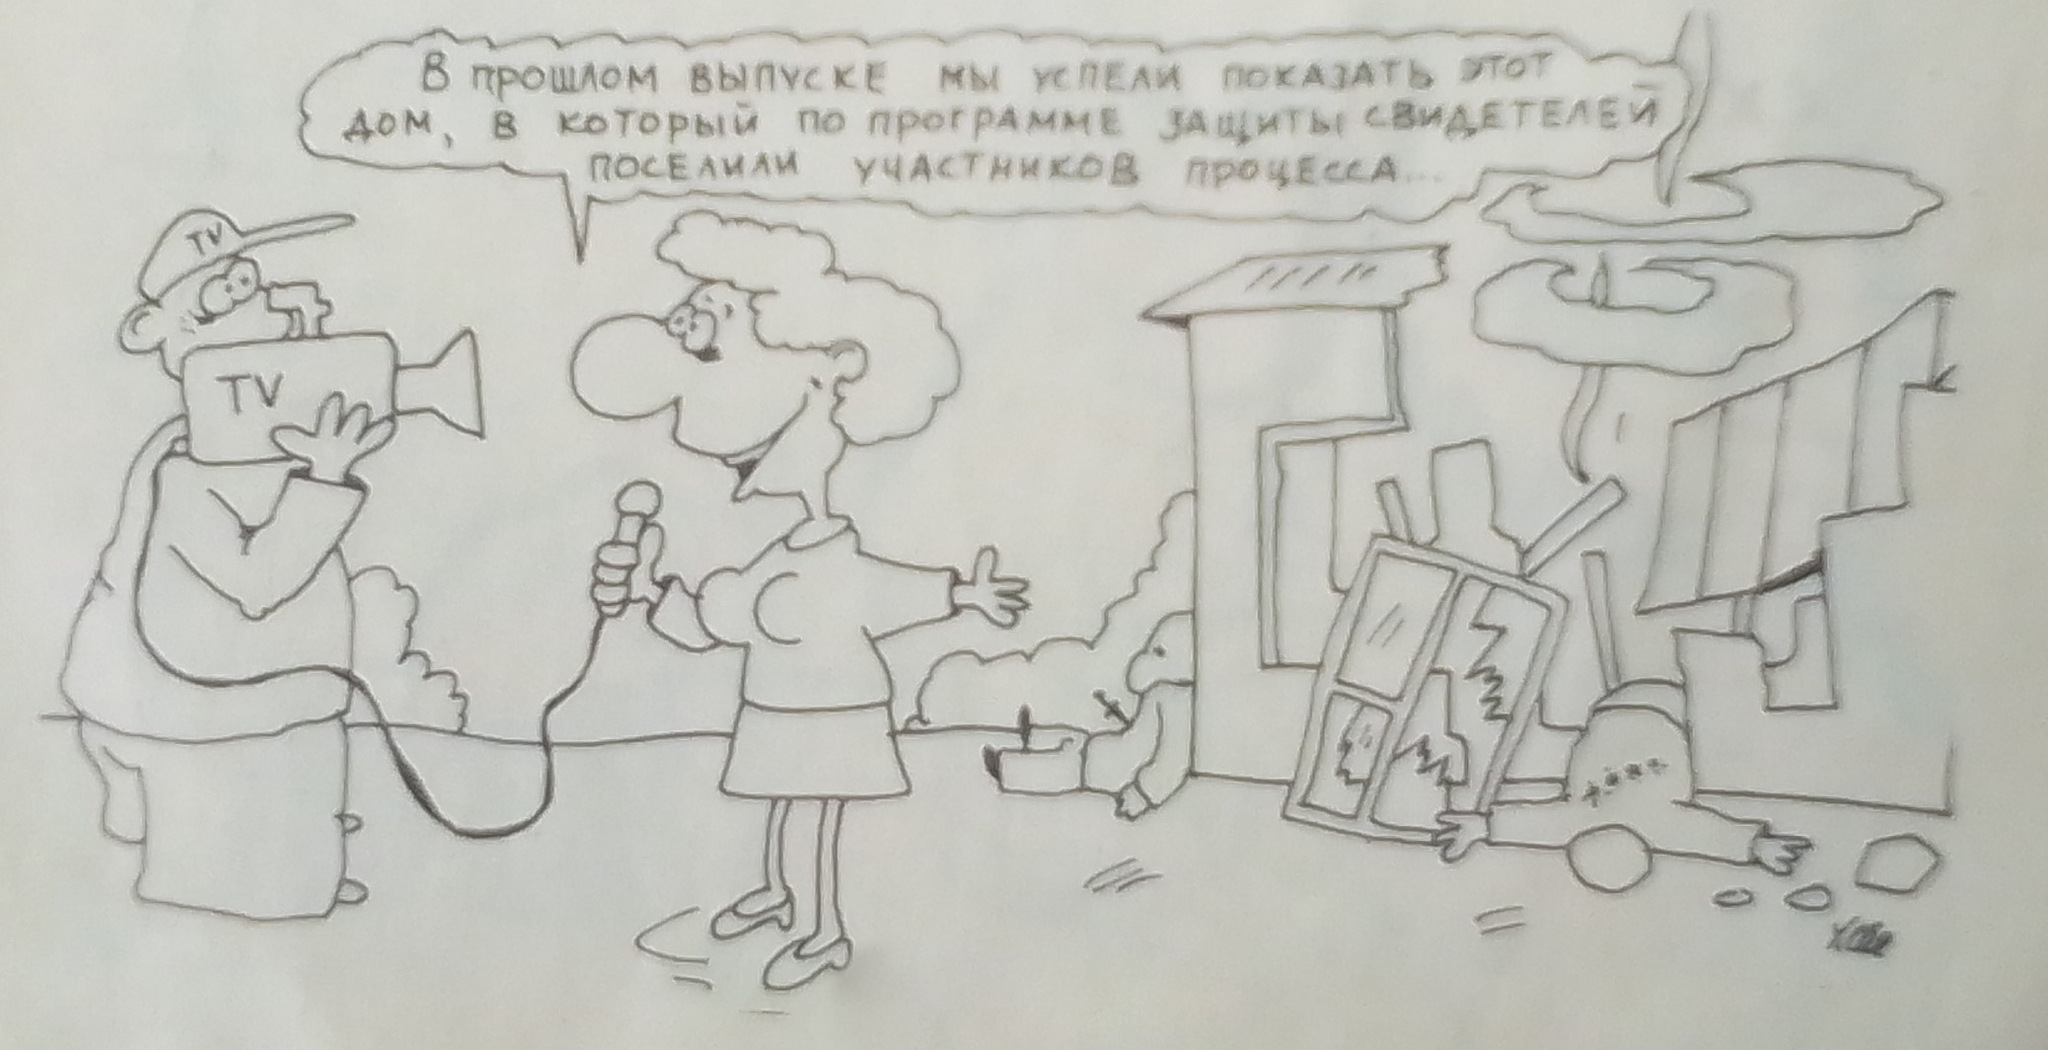 В ПРОШЛОМ ВЫПУСКЕ МЫ УСПЕЛИ ПОКАЗАТЬ ЭТОТ
ДОМ, В КОТОРЫЙ ПО ПРОГРАММЕ ЗАЩИТЫ СВИДЕТЕЛЕЙ
ПОСЕЛИЛИ УЧАСТНИКОВ ПРОЦЕССА...
TV
TV